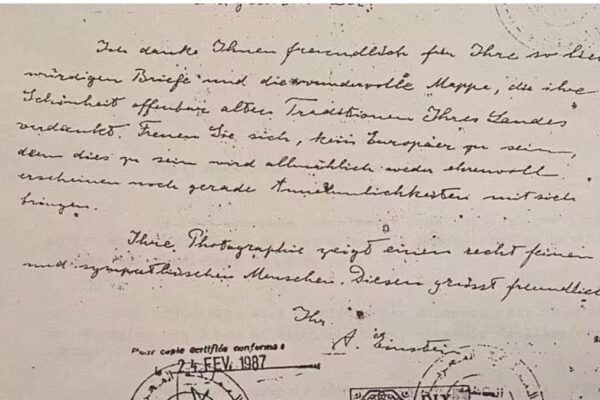 Ich danke Ihnen freundlich für Ihre so lie
würdigen Briefe und die wundervolle Mappe, die ihre
Schönheit offenbar alten Traditionen Ihres Landes
verdankt. Freuen Sie sich, kein Europäer zu sein,
denn dies zu sein wird allmählich weder ehrenvoll
erscheinen noch gerade Annehmlichkeiten mit sich
bringen.
Ihre Photographie zeigt einen recht feinen
und sympathischen Menschen. Diesen grüsst freundlich
Ihr
A. Einstein
Pour copie certifiée conforme
24 FEV. 1987
DIX